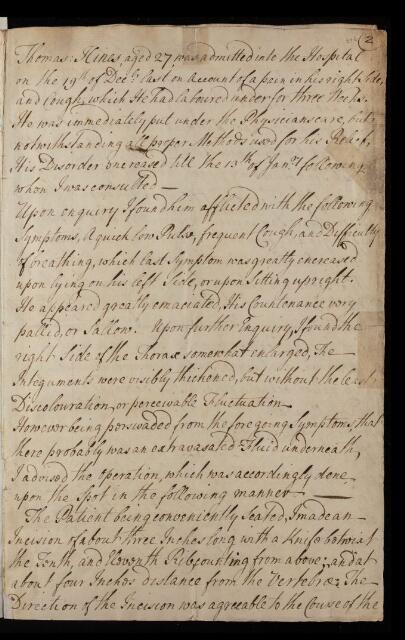 2
Thomas Hines, aged 27, was admitted into the Hospital
on the 19th of Decr. last on Account of a pain in his right Side,
and Cough, which He had laboured under for three Weeks.
He was immediately put under the Physicians care, but
notwithstanding all proper Methods used for his Relief,
His Disorder encreased till the 13th of Janry following
when I was consulted —
Upon enquiry I found him afflicted with the following
Symptoms, A quick low Pulse, frequent Cough, and Difficulty
of breathing, which last Symptom was greatly encreased
upon lying on his left Side, or upon Sitting upright.
He appeared greatly emaciated, His Countenance very
pallid, or Sallow. Upon further Enquiry, I found the
right Side of the Thorax somewhat enlarged, The
Integuments were visibly thickened, but without the least
Discolouration, or perceivable Fluctuation —
However being perswaded from the foregoing Symptoms, that
there probably was an extravasated Fluid underneath,
I advised the Operation, which was accordingly done
upon the Spot in the following manner —
The Patient being conveniently Seated, I made an
Incision of about three Inches long with a Knife between
the Tenth, and Eleventh Rib, counting from above; and at
about four Inches distance from the Vertebræ; The
Direction of the Incision was agreeable to the Course of the